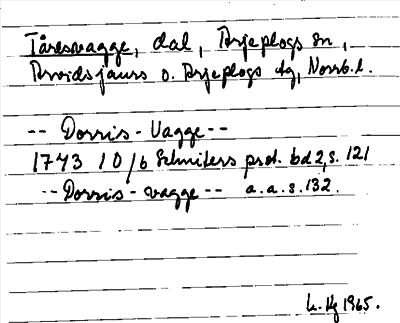 Tåresvagge, dal, Arjeplogs sn,
Arvidsjaurs o. Arjeplogs tg, Norrb.l.
-- Dorris-Vagge --
1743 10/6 Schnitlers prot. bd 2, s. 121
-- Dorris-vagge -- a.a.s. 132.
1965.